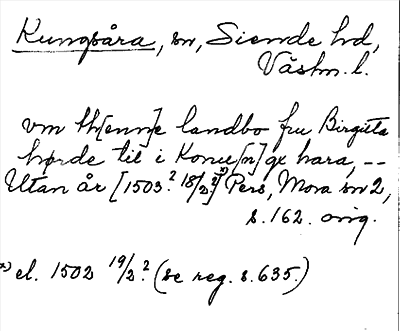 Kungsåra, sn, Siende hd,
Västm. l.
vm th[enn]e landbo fru Birgitta
hørde til i Konu[n]gx hara, --
Utan år [1503.? 18/2?]x) Pers, Mora sn 2,
s. 162. orig.
x) el. 1502 19/2.? (se reg. s. 635.)